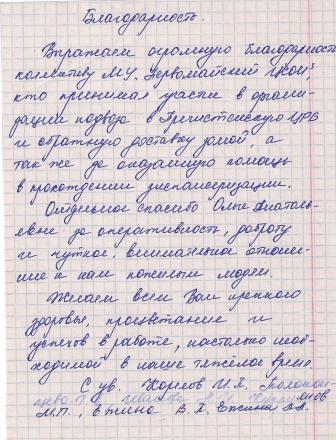 Благодарность.
Выражаем огромную благодарность
коллективу МУ. Первомайский
кто принимал участие в органи-
зации подвоза в Пречистенскую ЦРБ
и обратную доставку домой, а
так же за оказанную помощь
в прохождении диспансеризации.
Отдельное спасибо Ольге Анатоль-
евне за оперативность, заботу
и чуткое, внимательное отноше-
ние к нам пожилым людям.
Желаем всем Вам крепкого
здоровья, процветание и
успехов в работе, настолько необ-
ходимой в наше тяжёлое время
С ув.
М.П., В. Х.